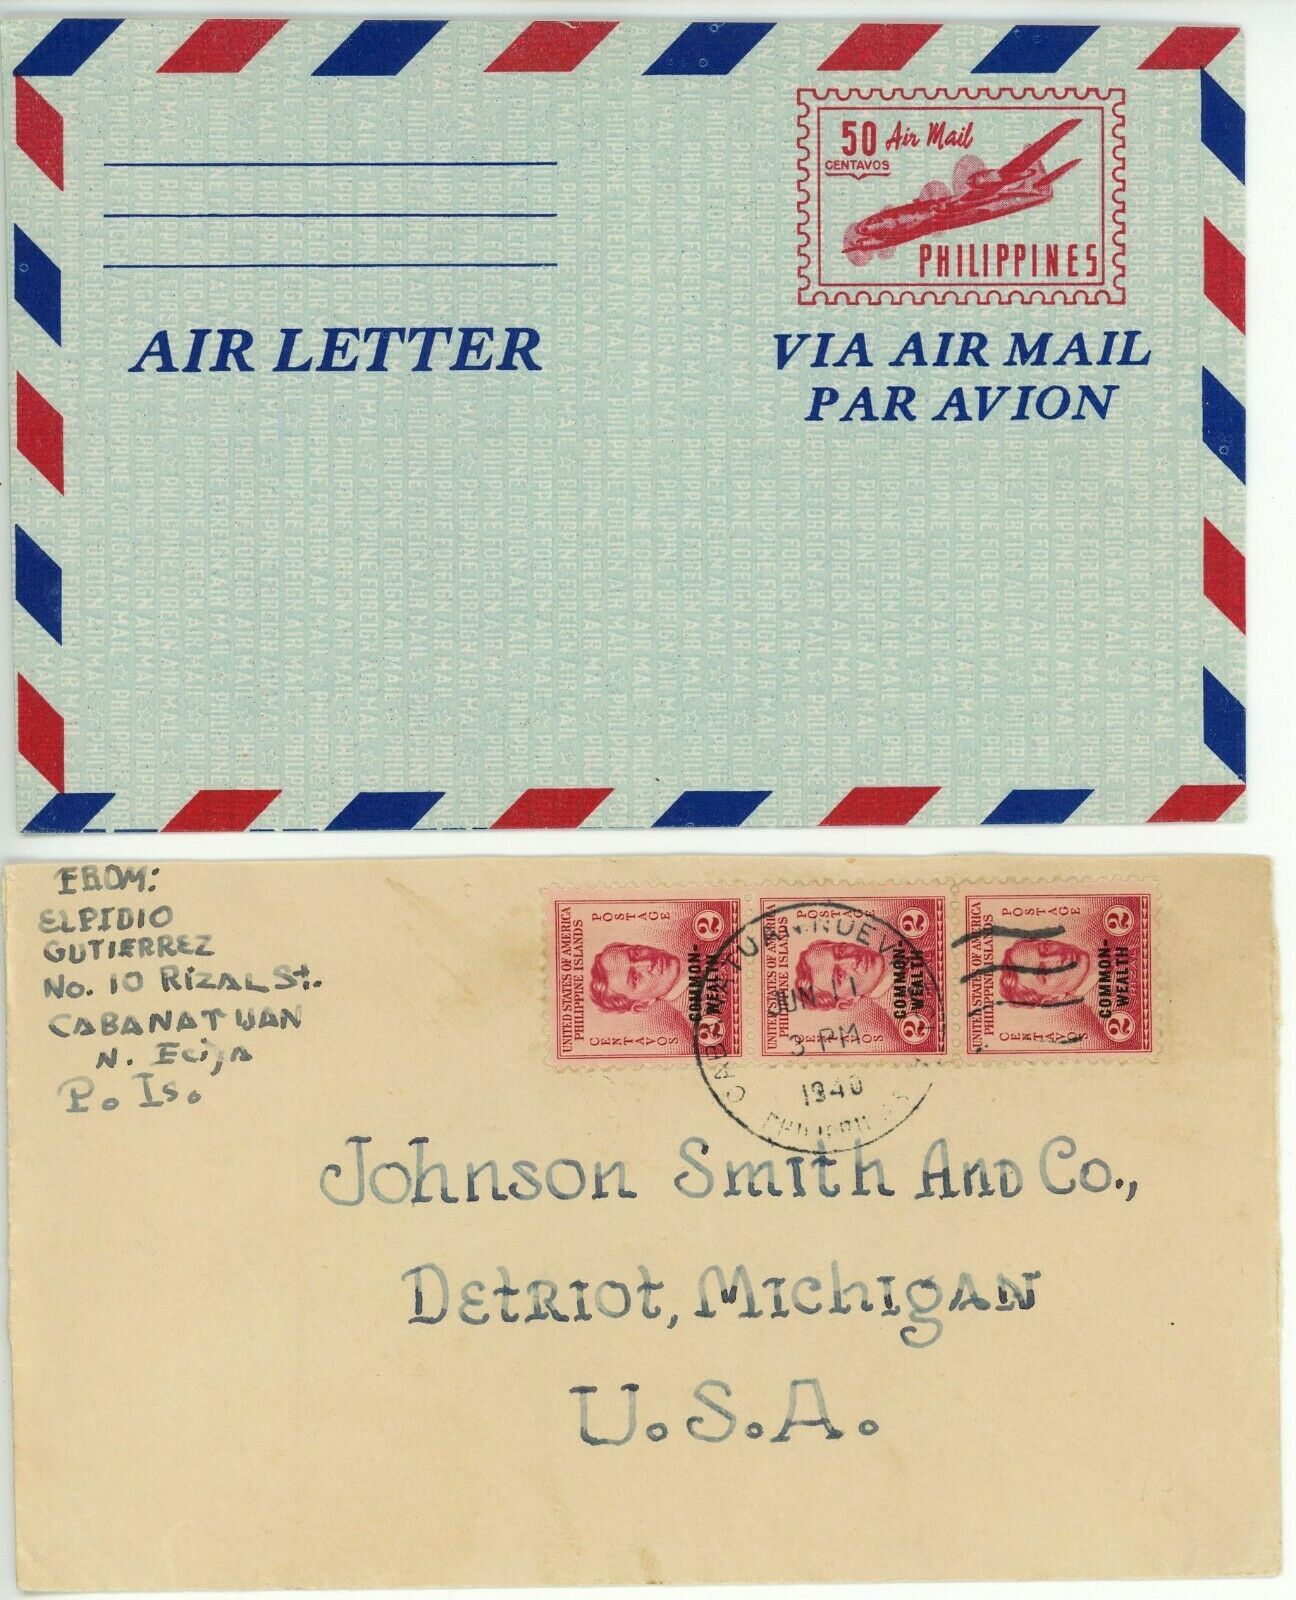 50 Air Mail
CENTAVOS
PHILIPPINES
AIR LETTER
VIA AIR MAIL
PAR AVION
PHILIPPINE FOREIGN AIR MAIL
FROM:
ELPIDIO
GUTIERREZ
No. 10 RIZAL St.
CABANATUAN
N. Ecija
P. Is.
UNITED STATES OF AMERICA
PHILIPPINE ISLANDS
POSTAGE
CENTAVOS
2 2
COMMON-
WEALTH
UNITED STATES OF AMERICA
PHILIPPINE ISLANDS
POSTAGE
CENTAVOS
2 2
COMMON-
WEALTH
UNITED STATES OF AMERICA
PHILIPPINE ISLANDS
POSTAGE
CENTAVOS
2 2
COMMON-
WEALTH
JUN 11
3 PM
1940
PHILIPPINES
Johnson Smith And Co.,
Detriot, Michigan
U.S.A.